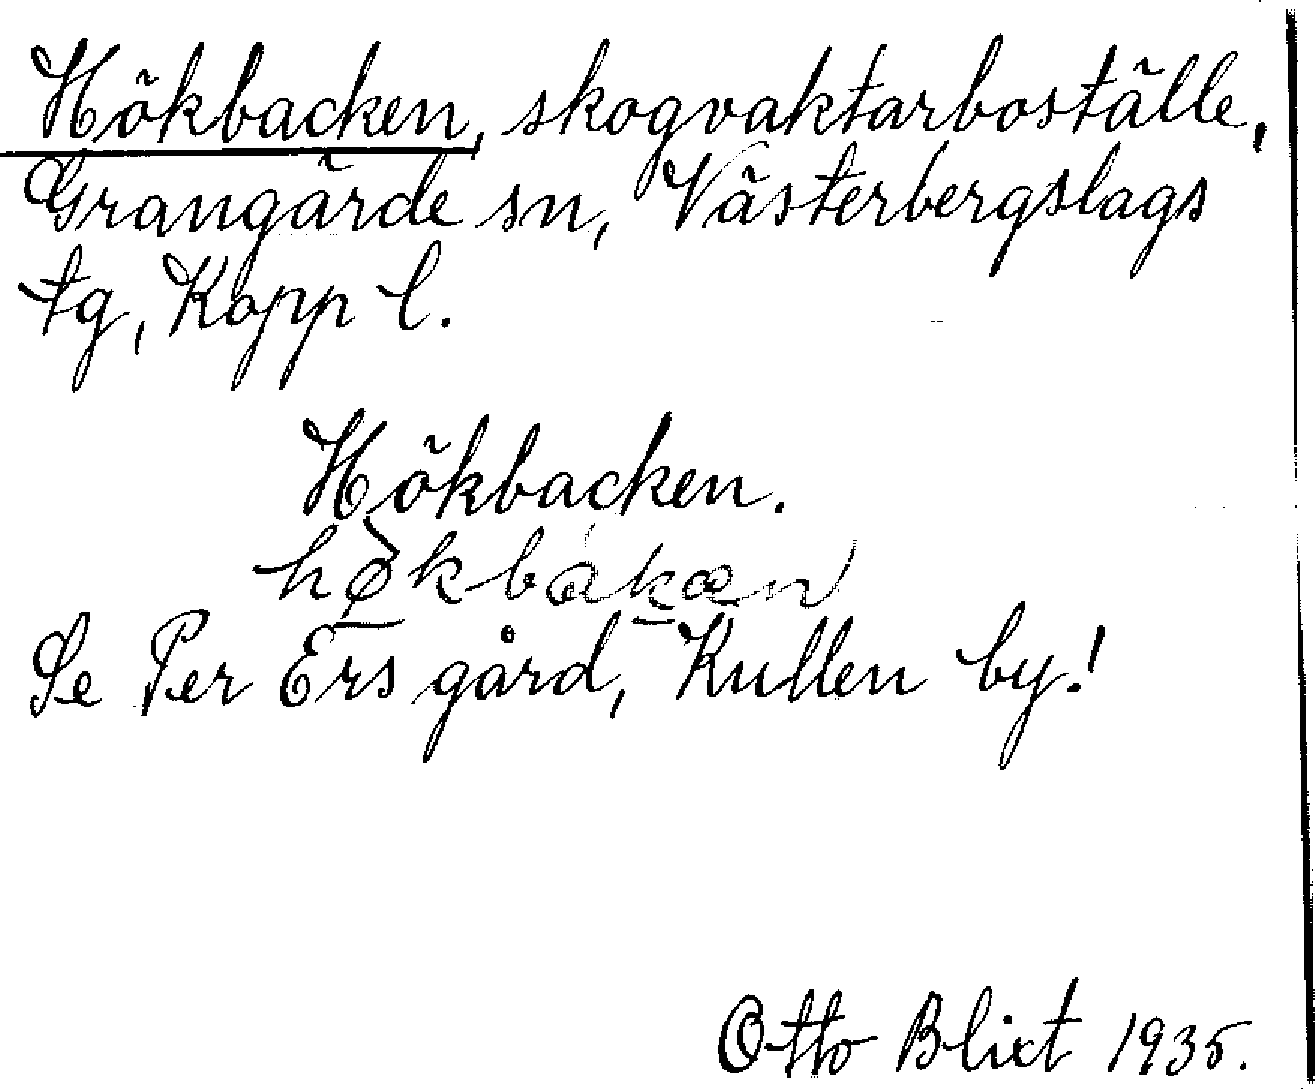 Hökbacken, skogvaktarboställe,
Grangärde sn, Västerbergslags
tg, Kopp l.
Hökbacken.
hø̀kbakæn
Se Per Ers gård, Kullen by!
Otto Blixt 1935.